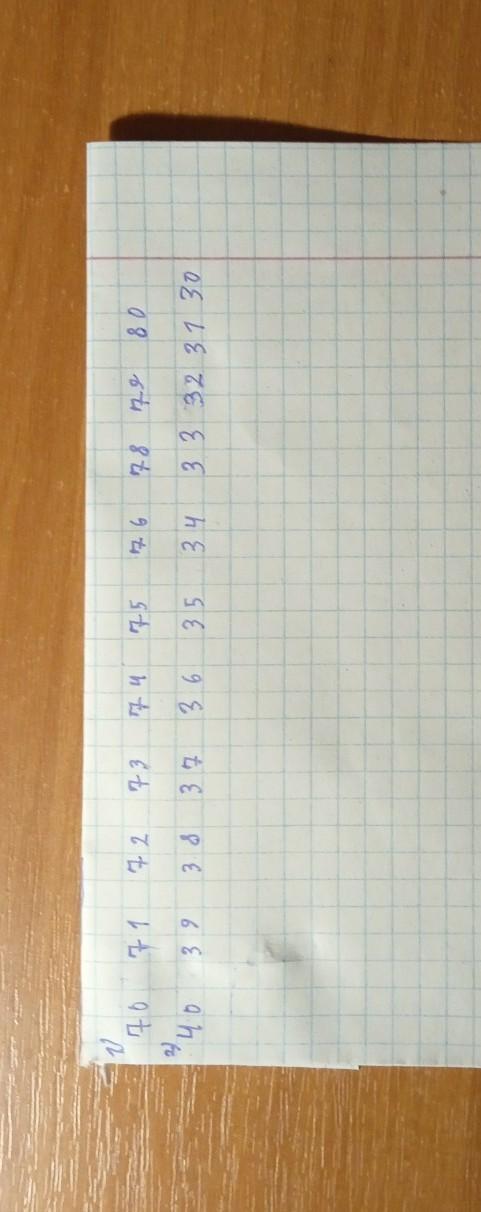 1)
70 71 72 73 74 75 76 78 79 80
2)
40 39 38 37 36 35 34 33 32 31 30